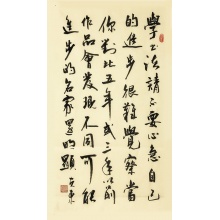 學書法請不要心急自己
的進步很難覺察當
你對比五年或三年以前
作品會发現不同可能
進步的名家墨的顯